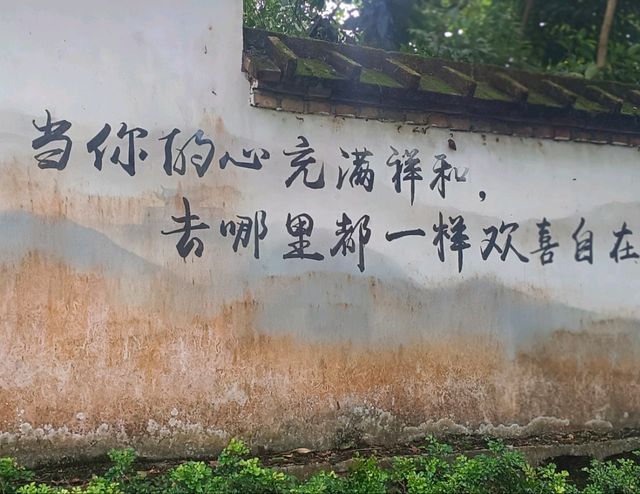 当你的心充满祥和，
去哪里都一样欢喜自在